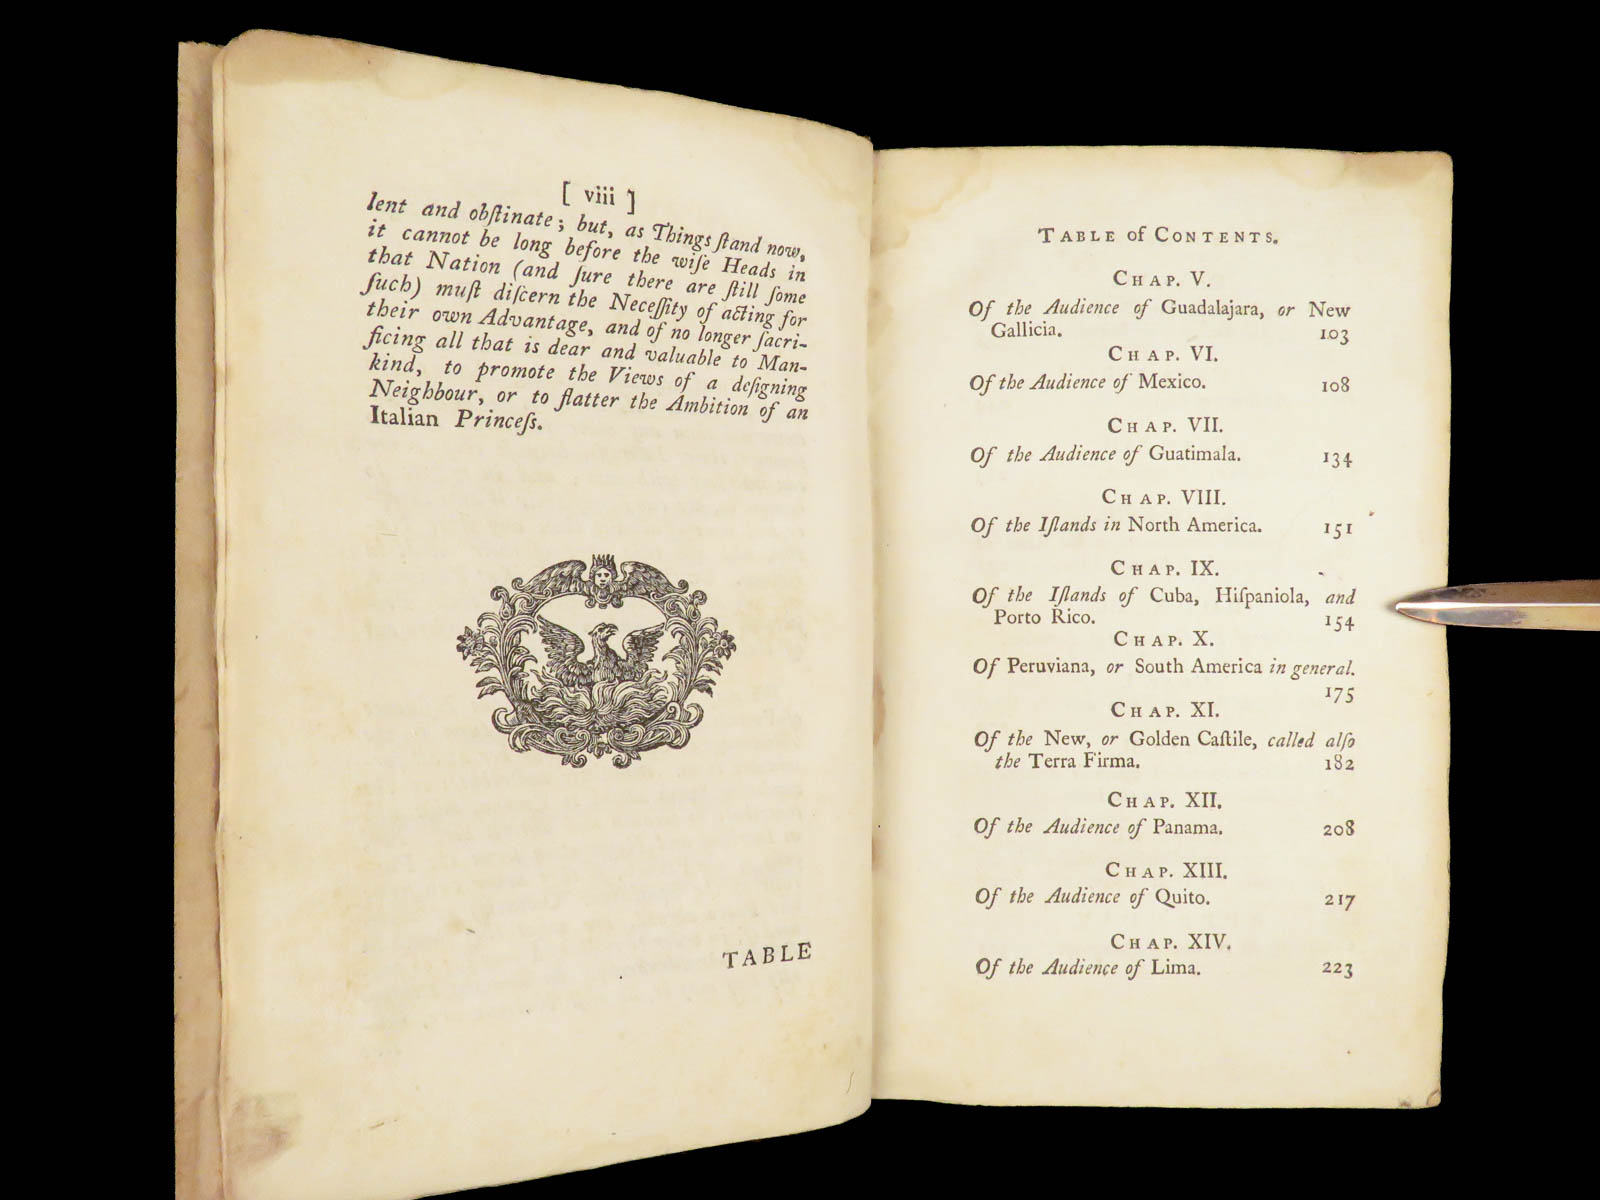 [ viii ]
lent and obſtinate; but, as Things ſtand now,
it cannot be long before the wiſe Heads in
that Nation (and ſure there are ſtill ſome
ſuch) muſt diſcern the Neceſſity of acting for
their own Advantage, and of no longer ſacri-
ficing all that is dear and valuable to Man-
kind, to promote the Views of a deſigning
Neighbour, or to flatter the Ambition of an
Italian Princeſs.
TABLE
TABLE of CONTENTS.
CHAP. V.
Of the Audience of Guadalajara, or New
Gallicia. 103
CHAP. VI.
Of the Audience of Mexico. 108
CHAP. VII.
Of the Audience of Guatimala. 134
CHAP. VIII.
Of the Iſlands in North America. 151
CHAP. IX.
Of the Iſlands of Cuba, Hiſpaniola, and
Porto Rico. 154
CHAP. X.
Of Peruviana, or South America in general.
175
CHAP. XI.
Of the New, or Golden Caſtile, called alſo
the Terra Firma. 182
CHAP. XII.
Of the Audience of Panama. 208
CHAP. XIII.
Of the Audience of Quito. 217
CHAP. XIV.
Of the Audience of Lima. 223